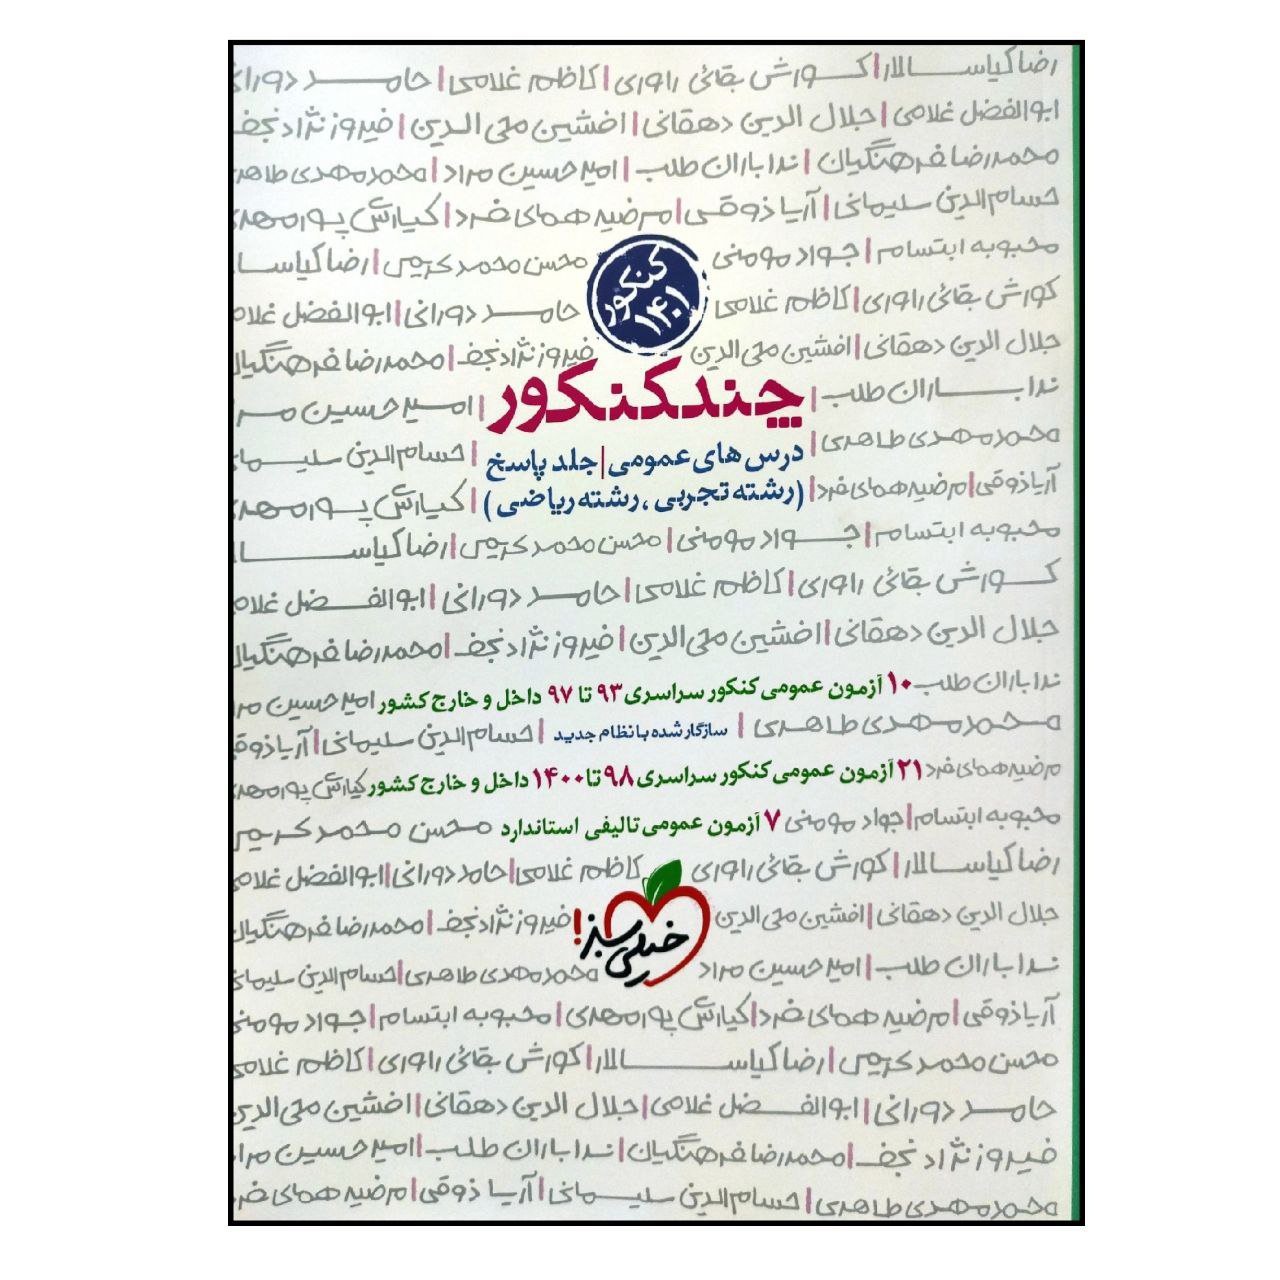 رضا کیاسالار | کورش بقائی راوری | کاظم غلامی | حامد دورانی
ابوالفضل غلامی | جلال الدین دهقانی | افشین محی الدین | فیروز نژاد نجف
محمدرضا فرهنگیان | ندا باران طلب | امیرحسین مراد | محمدمهدی طاهری
حسام الدین سلیمانی | آریا ذوقی | مرضیه همهای فرد | کیارش پورمهدی
محبوبه ابتسام | جواد مومنی محسن محمدکریمی | رضا کیاسا
کورش بقائی راوری | کاظم غلامی حامد دورانی | ابوالفضل غلام
کنکور ۱۴۰۱
جلال الدین دهقانی | افشین محی الدین فیروز نژاد نجف | محمدرضا فرهنگیان
ندا باران طلب | چند کنکور | امیرحسین مرا
محمدمهدی طاهری | درس های عمومی | جلد پاسخ | حسام الدین سلیمان
آریا ذوقی | مرضیه همهای فرد | (رشته تجربی، رشته ریاضی) | کیارش پورمهدی
محبوبه ابتسام | جواد مومنی | محسن محمدکریمی | رضا کیاسا
کورش بقائی راوری | کاظم غلامی | حامد دورانی | ابوالفضل غلام
جلال الدین دهقانی | افشین محی الدین | فیروز نژاد نجف | محمدرضا فرهنگیان
ندا باران طلب ۱۰ آزمون عمومی کنکور سراسری ۹۳ تا ۹۷ داخل و خارج کشور امیرحسین مرا
محمدمهدی طاهری | سازگار شده با نظام جدید | حسام الدین سلیمانی | آریا ذوق
مرضیه همهای فرد ۲۱ آزمون عمومی کنکور سراسری ۹۸ تا ۱۴۰۰ داخل و خارج کشور کیارش پورمهدی
محبوبه ابتسام | جواد مومنی ۷ آزمون عمومی تالیفی استاندارد محسن محمدکریم
رضا کیاسالار | کورش بقائی راوری کاظم غلامی | حامد دورانی | ابوالفضل غلامی
جلال الدین دهقانی | افشین محی الدین فیروز نژاد نجف | محمدرضا فرهنگیان
خیلی سبز!
ندا باران طلب | امیرحسین مراد محمدمهدی طاهری | حسام الدین سلیمان
آریا ذوقی | مرضیه همهای فرد | کیارش پورمهدی | محبوبه ابتسام | جواد مومنی
محسن محمدکریمی | رضا کیاسالار | کورش بقائی راوری | کاظم غلامی
حامد دورانی | ابوالفضل غلامی | جلال الدین دهقانی | افشین محی الدین
فیروز نژاد نجف | محمدرضا فرهنگیان | ندا باران طلب | امیرحسین مراد
محمدمهدی طاهری | حسام الدین سلیمانی | آریا ذوقی | مرضیه همهای فرد